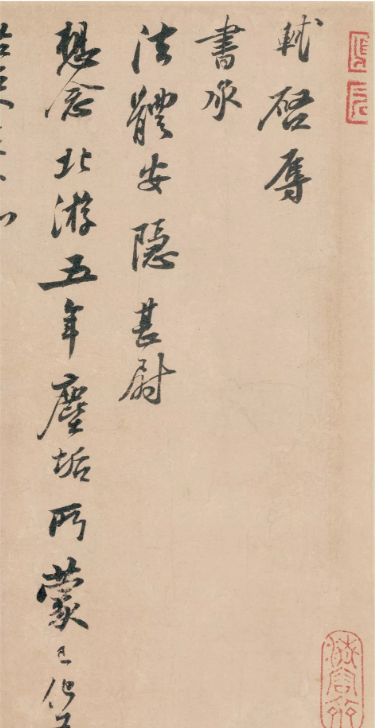 軾啓辱
書承
法體安隱甚尉
想念北游五年塵垢所蒙已化